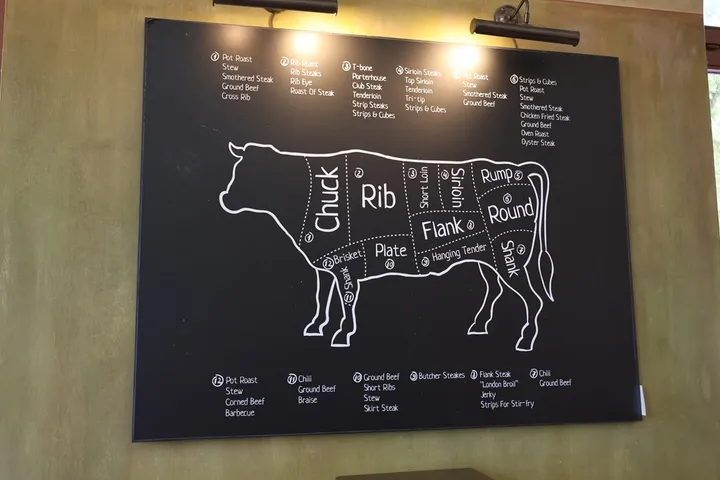 ① Pot Roast
Stew
Smothered Steak
Ground Beef
Cross Rib
② Rib Roast
Rib Steaks
Rib Eye
Roast Of Steak
③ T-bone
Porterhouse
Club Steak
Tenderloin
Strip Steaks
Strips & Cubes
④ Sirloin Steaks
Top Sirloin
Tenderloin
Tri-tip
Strips & Cubes
Roast
Stew
Smothered Steak
Ground Beef
⑥ Strips & Cubes
Pot Roast
Stew
Smothered Steak
Chicken Fried Steak
Ground Beef
Oven Roast
Oyster Steak
Chuck ①
② Rib
③ Short Loin
④ Sirloin
Rump ⑤
⑥ Round
Flank ⑧
⑫ Brisket
Plate ⑩
⑨ Hanging Tender
Shank ⑦
Shank ⑪
⑫ Pot Roast
Stew
Corned Beef
Barbecue
⑪ Chili
Ground Beef
Braise
⑩ Ground Beef
Short Ribs
Stew
Skirt Steak
⑨ Butcher Steakes
⑧ Flank Steak
"London Broil"
Jerky
Strips For Stir-fry
⑦ Chili
Ground Beef